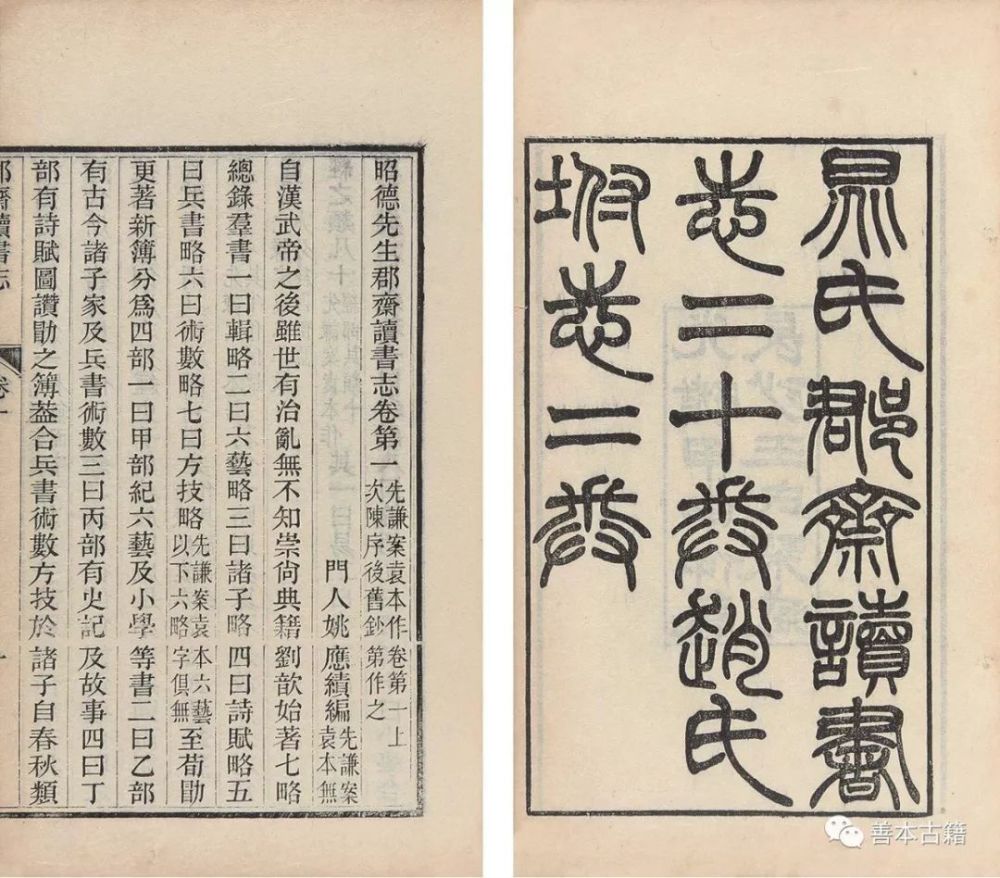 晁氏郡齋讀書
志二十卷趙氏
坿志二卷
昭德先生郡齋讀書志卷第一先謙案袁本作卷第一上次陳序後舊鈔第作之
門人姚應績編先謙案袁本無
自漢武帝之後雖世有治亂無不知崇尙典籍劉歆始著七略
總錄羣書一曰輯略二曰六藝略三曰諸子略四曰詩賦略五
曰兵書略六曰術數略七曰方技略先謙案袁本六藝以下六略字俱無至荀勖
更著新簿分爲四部一曰甲部紀六藝及小學等書二曰乙部
有古今諸子家及兵書術數三曰丙部有史記及故事四曰丁
部有詩賦圖讚勖之簿葢合兵書術數方技於諸子自春秋類
郡齋讀書志
卷一
一
善本古籍